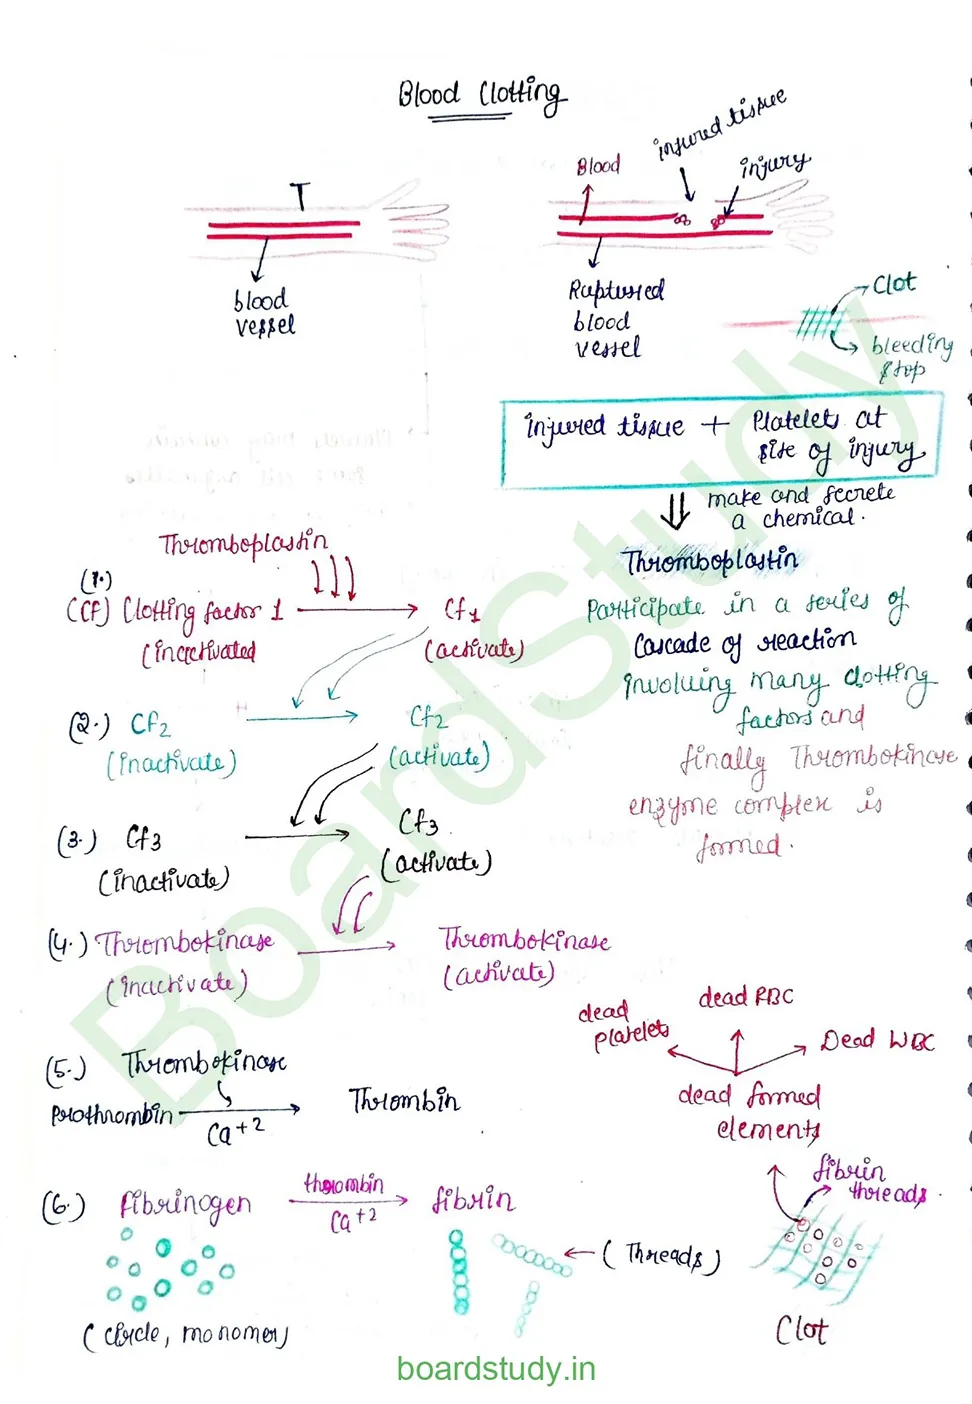 Blood Clotting
T
blood
vessel
Blood
injured tissue
injury
Ruptured
blood
vessel
Clot
bleeding
stop
injured tissue + Platelets at
site of injury
make and secrete
a chemical.
Thromboplastin
Participate in a series of
Cascade of reaction
involving many clotting
factors and
finally Thrombokinase
enzyme complex is
formed.
Thromboplastin
(1.)
(Cf) Clotting factor 1 → Cf1
(inactivated (activate)
(2.) Cf2 → Cf2
(inactivate) (activate)
(3.) Cf3 → Cf3
(inactivate) (activate)
(4.) Thrombokinase → Thrombokinase
(inactivate) (activate)
(5.) Thrombokinase
Prothrombin → Thrombin
Ca+2
(6.) fibrinogen → fibrin
thrombin
Ca+2
(Threads)
(circle, monomer)
dead
platelets
dead RBC
Dead WBC
dead formed
elements
fibrin
threads.
Clot
BoardStudy
boardstudy.in